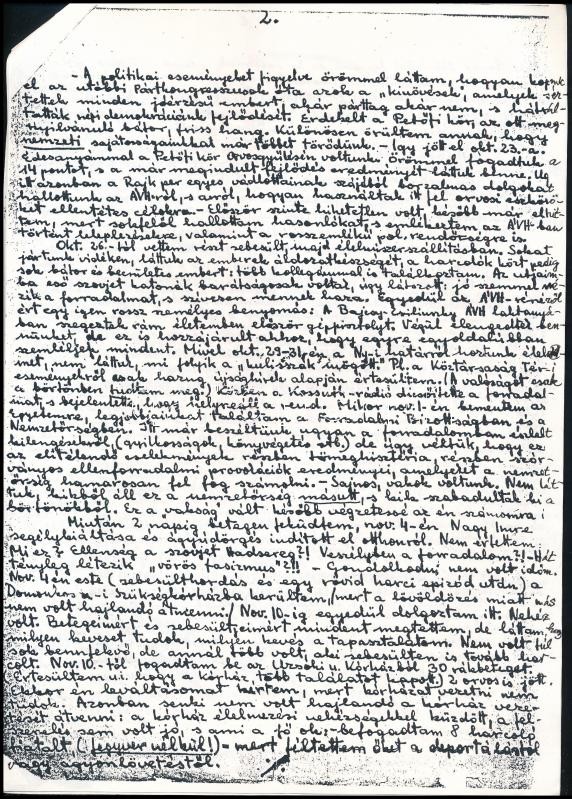 2.
- A politikai eseményeket figyelve örömmel láttam, hogyan
el az utóbbi Pártkongresszusok óta azok a „kinövések", amelyek
tettek minden jóérzésű embert, akár párttag akár nem, s
tatták népi demokráciánk fejlődését. Érdekelt a Petőfi kör, az ott meg-
nyilvánuló bátor, friss hang. Különösen örültem annak, hogy
nemzeti sajátosságainkkal már többet törődünk. - Így jött el okt. 23. -
Édesanyámmal a Petőfi Kör orvosgyűlésén voltunk. Örömmel fogadtuk a
14 pontot, s a már megindult fejlődés eredményét láttuk benne. Ug
itt azonban a Rajk per egyes vádlottainak szájából borzalmas dolgokat
hallottunk az ÁVH-ról, s arról, hogyan használtak itt fel orvosi
ket ellentétes célokra. - Először szinte hihetetlen volt, később már
tem, mert sokfelől hallottam hasonlókat, s emlékeztem az ÁVH-ban
történt leleplezésekre, valamint a rosszemlékű pol. rendőrségre is.
Okt. 26.-tól vettem részt sebesült, majd élelmiszerszállításban. Sokat
jártunk vidéken, láttuk az emberek áldozatkészségét, a harcolók közt pedig
sok bátor és becsületes embert: több kollegámmal is találkoztam. Az
ba eső szovjet katonák barátságosak voltak, úgy látszott: jó szemmel né-
zik a forradalmat, s szívesen mennek haza. Egyedül az ÁVH-
ért egy igen rossz személyes benyomás: A Bajcsy-Zsilinszky ÁVH laktanyá-
ban szegeztek rám életemben először géppisztolyt. Végül elengedtek ben-
nünket, de ez is hozzájárult ahhoz, hogy egyre egyoldalúbban
szemléljek mindent. Mivel okt. 29-31.-én a Ny-i határról hoztunk élel-
met, nem láttuk, mi folyik a „kulisszák mögött". Pl. a Köztársaság Tér-i
eseményekről csak harang, újsághírek alapján értesültem. (A valóságot csak
a börtönben tudtam meg.) Közben a Kossuth-rádió dicsőítette a forradal-
mat, s bejelentette, hogy helyreáll a rend. Mikor nov. 1.-én bementem az
Egyetemre, legjobbjainkat találtam a Forradalmi Bizottságban, és a
Nemzetőrségben. Itt már beszéltünk ugyan a forradalomban észlelt
kilengésekről, (gyilkosságok, könyvégetés stb.) de úgy véltük, hogy ez
az elítélendő cselekmények részben tömeghisztéria, részben
ványos ellenforradalmi provokációk eredményei, amelyeket a nemzet-
őrség hamarosan fel fog számolni. - Sajnos, vakok voltunk. Nem lát-
tuk, kikből áll ez a nemzetőrség másutt, s kik szabadultak ki a
börtönökből. Ez a „vakság" vált később végzetessé az én számomra i
Miután 2 napig betegen feküdtem, nov. 4-én Nagy Imre
segélykiáltása és ágyúdörgés indított el otthonról. Nem értettem:
Mi ez? Ellenség a szovjet Hadsereg?! Veszélyben a forradalom?! - Hát
tényleg létezik „vörös fasizmus"?!! - Gondolkodni nem volt időm.
Nov. 4-én este (sebesülthordás és egy rövid harci epizód után) a
Domonkos u.-i Szükségkórházba kerültem, /mert a lövöldözés miatt más
nem volt hajlandó átvenni./ Nov. 10-ig egyedül dolgoztam itt. Nehéz
volt. Betegeimért és sebesültjeimért mindent megtettem, de láttam, hogy
milyen keveset tudok, milyen kevés a tapasztalatom. Nem volt túl
sok bennfekvő, de annál több volt, aki sebesülten is tovább har-
colt. Nov. 10.-től fogadtam be az Uzsoki u. Kórházból 30 várbeteget.
Értesültem ui. hogy a kórház több találatot kapott. 2 orvos is jött.
Ekkor én leváltásomat kértem, mert kórházat vezetni nem
tudok. Azonban senki nem volt hajlandó a kórház veze-
tését átvenni: a kórház élelmezési nehézségekkel küzdött, a fel-
szerelés sem volt jó, s ami a fő ok: - befogadtam 8 harcoló
fiatalt (fegyver nélkül!) - mert féltettem őket a deportálástól
vagy agyonlövetéstől.